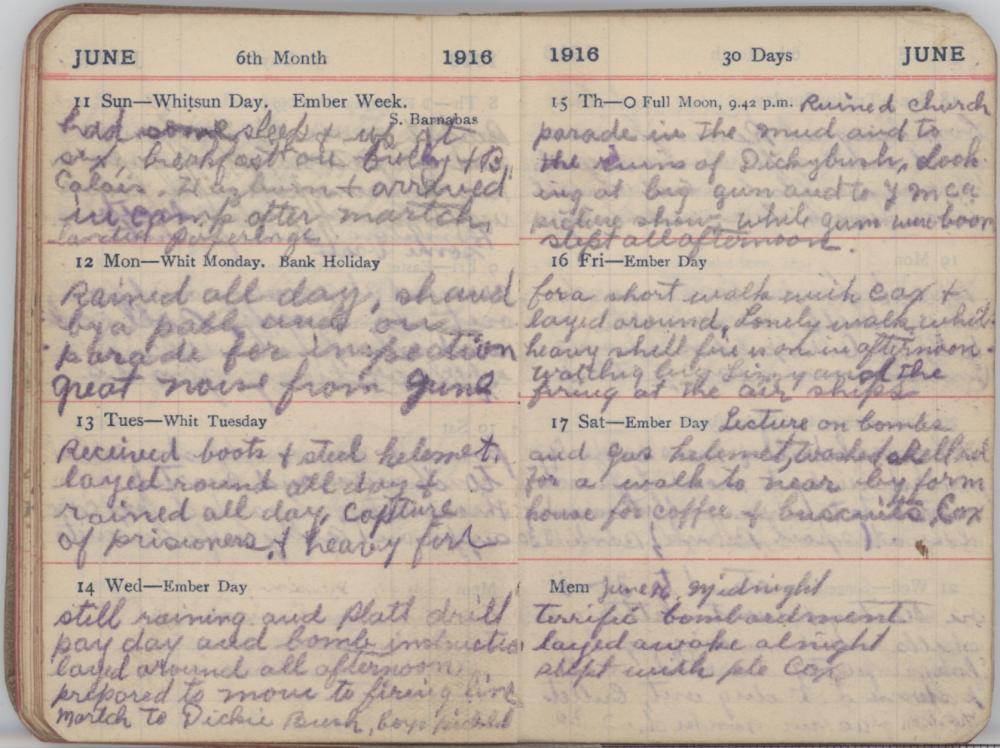 JUNE 6th Month 1916
11 Sun—Whitsun Day. Ember Week.
S. Barnabas
had some sleep & up at
six, breakfast on bully & B,
Calais. & arrived
in camp after martch,
landed
12 Mon—Whit Monday. Bank Holiday
Rained all day, shaved
by a pall and on
parade for inspection
great noise from guns
13 Tues—Whit Tuesday
Received boots & steel helemet.
layed round all day &
rained all day, Capture
of prisioners, & heavy fire
14 Wed—Ember Day
still raining and Platt drill
pay day and bomb instructio
layed around all afternoon
prepared to move to firing line
martch to Dickie Bush, boys
1916 30 Days JUNE
15 Th—O Full Moon, 9.42 p.m. Ruined church
parade in the mud and to
the ruins of Dickybush, look
ing at big gun and to Y M C A
picture show while guns were boom
slept all afternoon.
16 Fri—Ember Day
for a short walk with Cax &
layed around, Lonely walk, while
heavy shell fire is on in afternoon.
watching and the
firing at the air ships
17 Sat—Ember Day Lecture on bombs
and gas helemet, washed
for a walk to near by farm
house for coffee & buscuits, Cox
Mem June midnight
terrific bombardment
layed awake alnight
slept with pte Cox